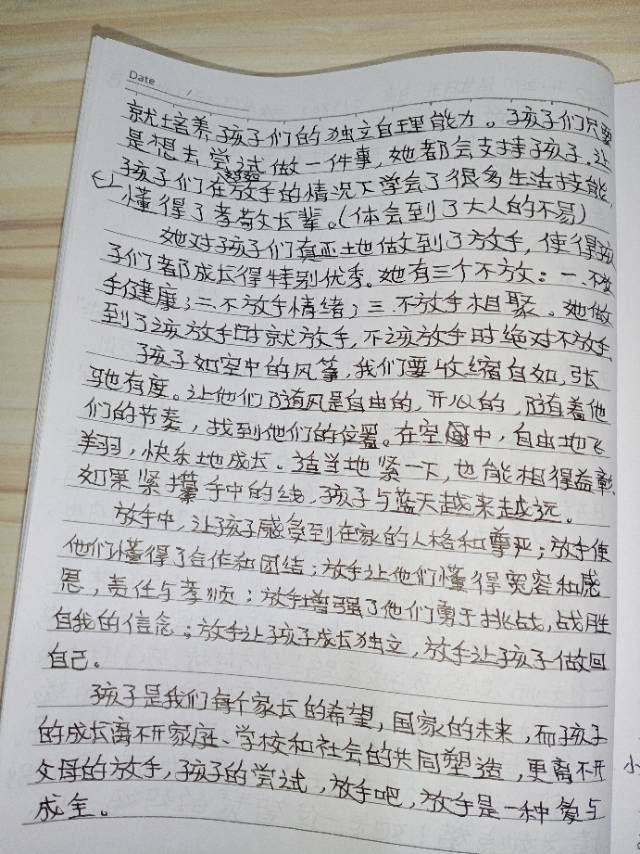 Date /
就培养孩子们的独立自理能力。孩子们只要
是想去尝试做一件事,她都会支持孩子。让
孩子们在放手的情况下学会了很多生活技能,
懂得了孝敬长辈。(体会到了大人的不易)
她对孩子们真正地做到了放手,使得孩
子们都成长得特别优秀。她有三个不放:一、不放
手健康;二、不放手情绪;三、不放手相聚。她做
到了该放手时就放手,不该放手时绝对不放手
孩子如空中的风筝,我们要收缩自如,张
驰有度。让他们随风是自由的,开心的,随着他
们的节奏,找到他们的位置。在空中,自由地飞
翔,快乐地成长。适当地紧一下,也能相得益彰,
如果紧攥手中的线,孩子与蓝天越来越远。
放手中,让孩子感受到在家的人格和尊严;放手使
他们懂得了合作和团结;放手让他们懂得宽容和感
恩,责任与孝顺;放手增强了他们勇于挑战,战胜
自我的信念;放手让孩子成长独立,放手让孩子做回
自己。
孩子是我们每个家长的希望,国家的未来,而孩子
的成长离不开家庭、学校和社会的共同塑造,更离不开
父母的放手,孩子的尝试,放手吧,放手是一种爱与
成全。
小